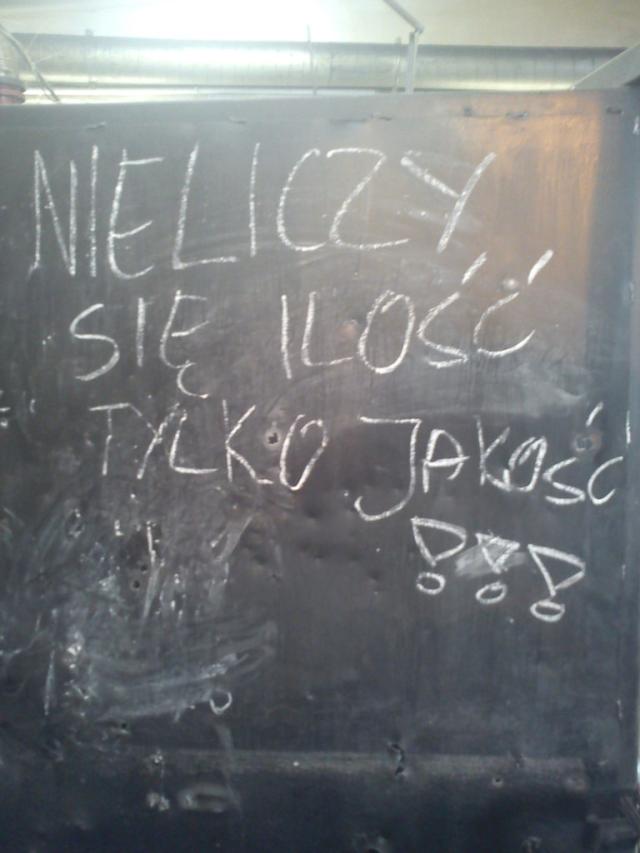 NIELICZY
SIĘ ILOŚĆ
TYLKO JAKOŚĆ
!!!